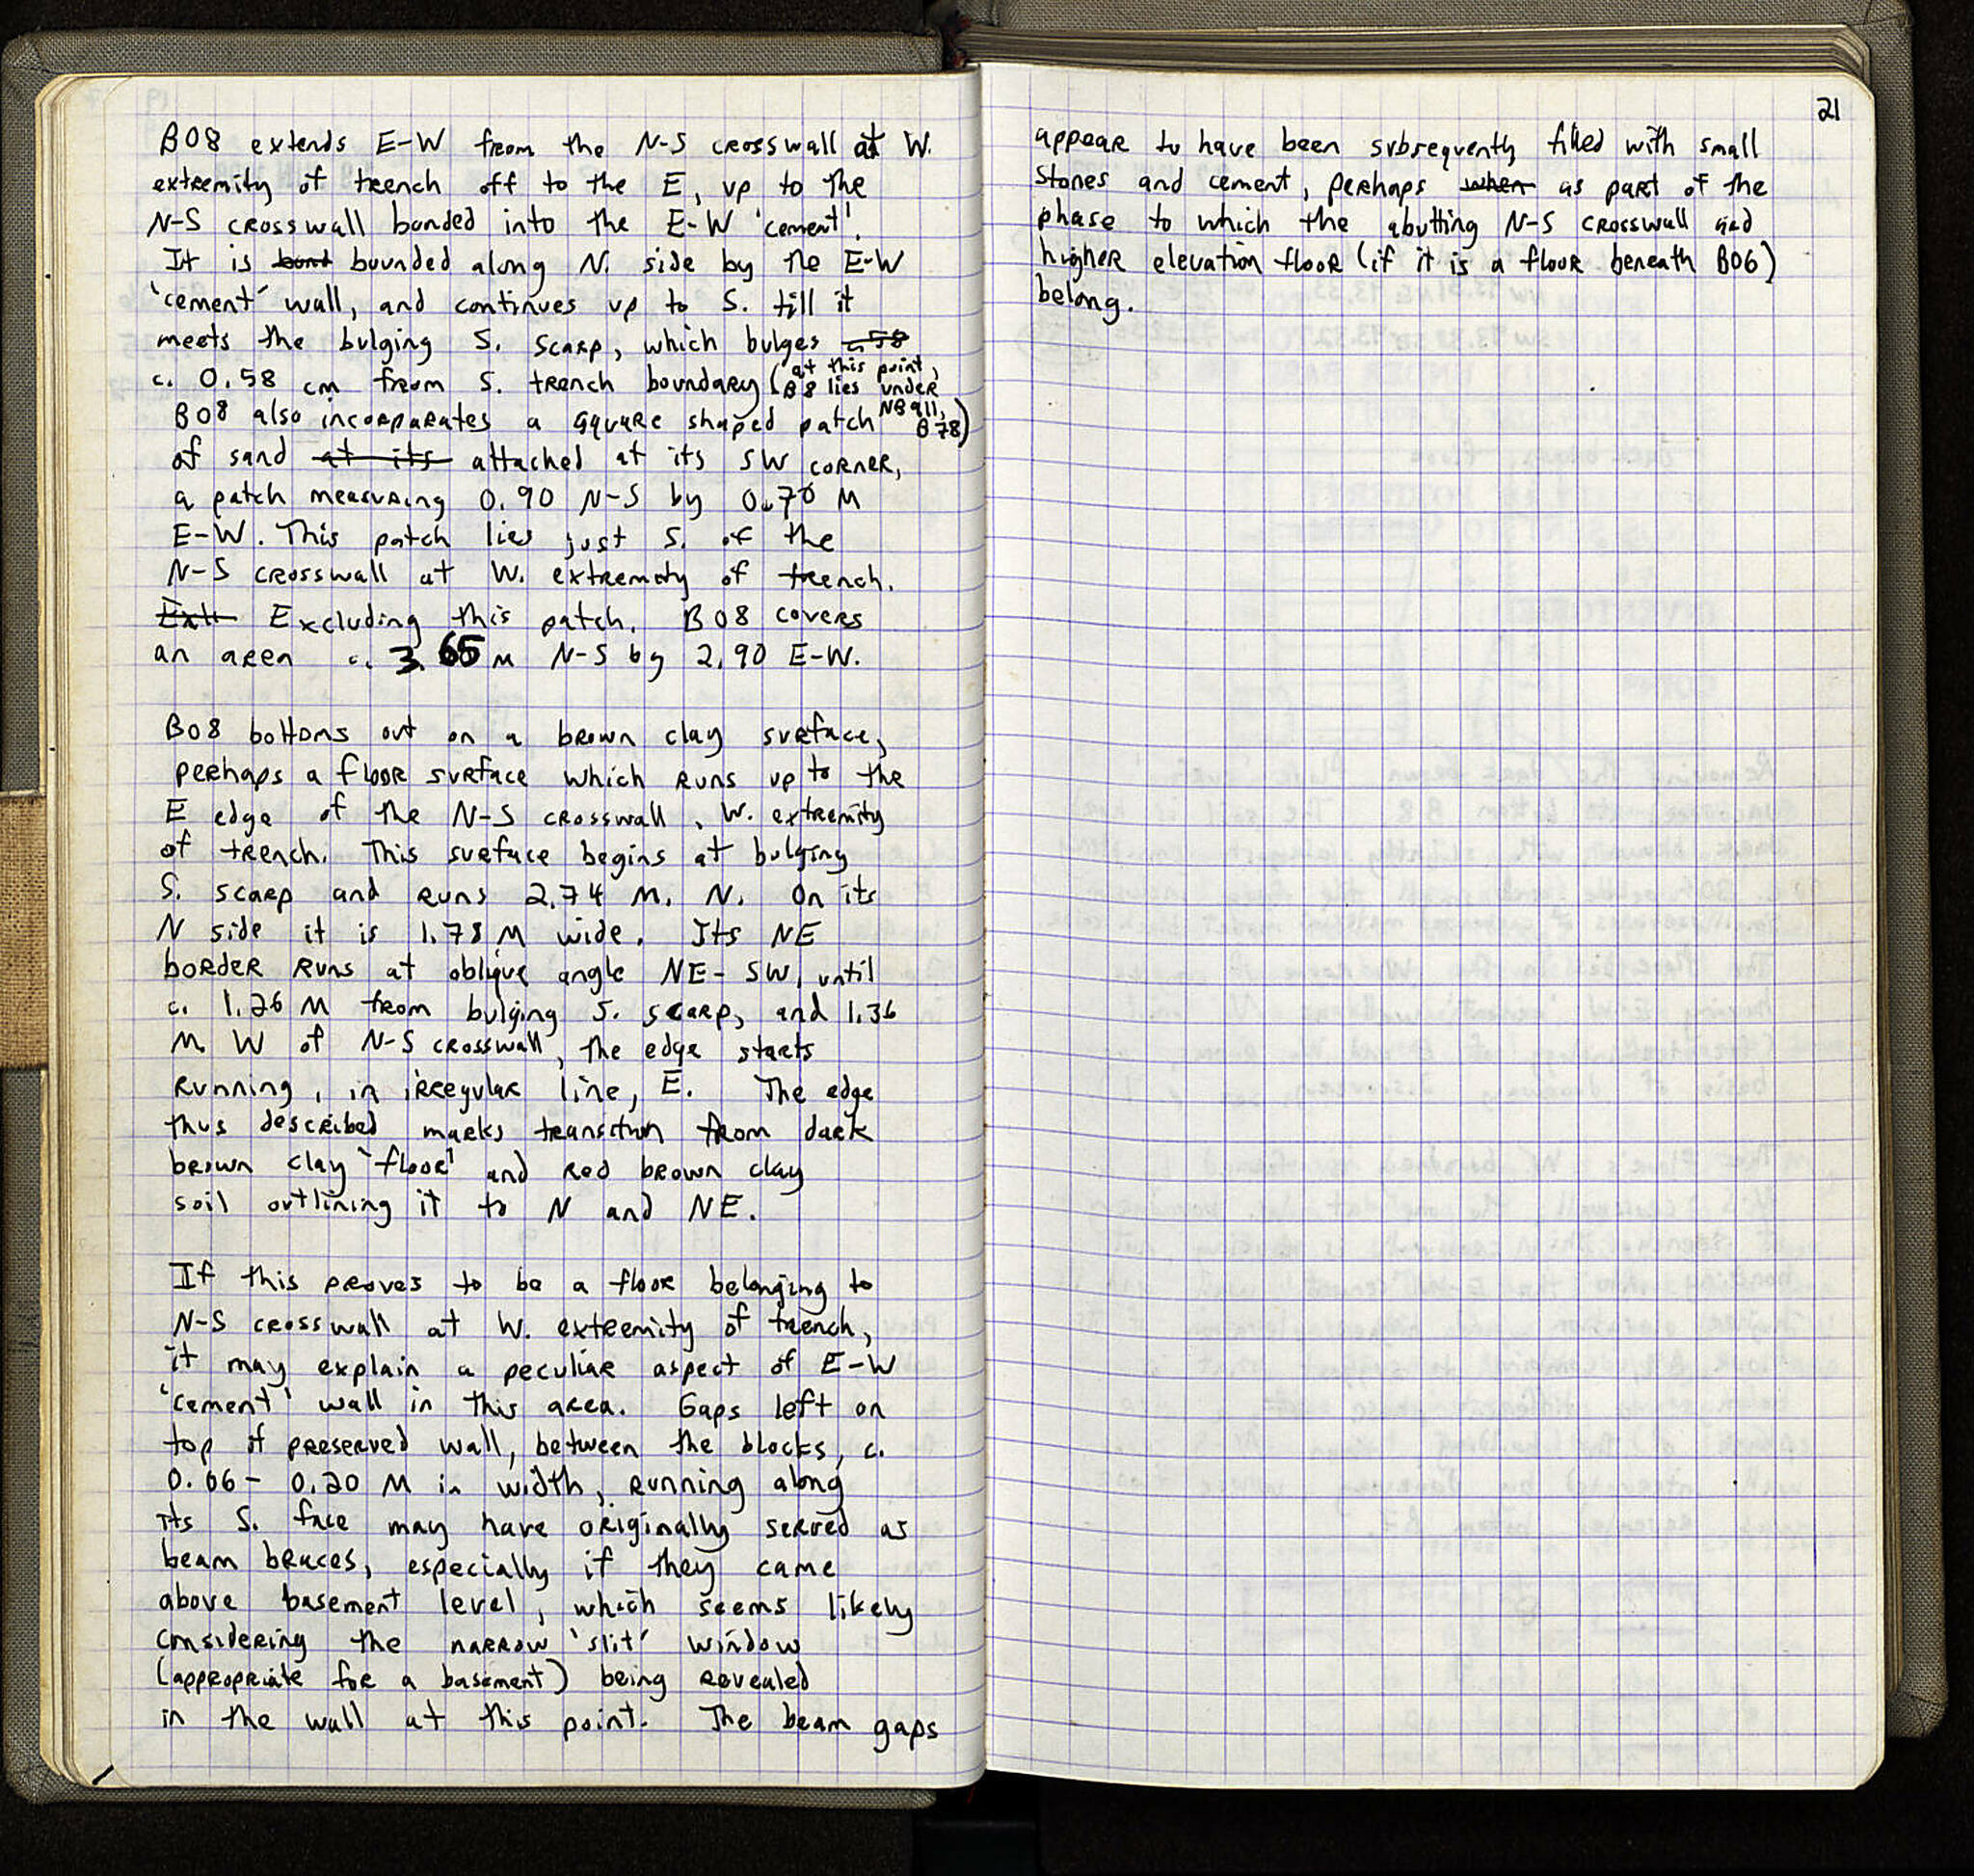 B08 extends E-W from the N-S crosswall at W.
extremity of trench off to the E, up to the
N-S crosswall bonded into the E-W 'cement'.
It is bond bounded along N. side by the E-W
'cement' wall, and continues up to S. till it
meets the bulging S. scarp, which bulges c. 58
c. 0.58 cm from S. trench boundary (at this point,
B8 lies under
NB 911,
B78)
B08 also incorporates a square shaped patch
of sand at its attached at its SW corner,
a patch measuring 0.90 N-S by 0.70 M
E-W. This patch lies just S. of the
N-S crosswall at W. extremity of trench.
Ext Excluding this patch, B08 covers
an area c. 3.65 M N-S by 2.90 E-W.
B08 bottoms out on a brown clay surface,
perhaps a floor surface which runs up to the
E edge of the N-S crosswall, W. extremity
of trench. This surface begins at bulging
S. scarp and runs 2.74 M. N. On its
N side it is 1.78 M wide. Its NE
border runs at oblique angle NE-SW, until
c. 1.26 M from bulging S. scarp, and 1.36
M W of N-S crosswall, the edge starts
running, in irregular line, E. The edge
thus described marks transition from dark
brown clay 'floor' and red brown clay
soil outlining it to N and NE.
If this proves to be a floor belonging to
N-S crosswall at W. extremity of trench,
it may explain a peculiar aspect of E-W
'cement' wall in this area. Gaps left on
top of preserved wall, between the blocks, c.
0.06 - 0.20 M in width, running along
its S. face may have originally served as
beam braces, especially if they came
above basement level, which seems likely
considering the narrow 'slit' window
(appropriate for a basement) being revealed
in the wall at this point. The beam gaps
21
appear to have been subsequently filled with small
stones and cement, perhaps when as part of the
phase to which the abutting N-S crosswall and
higher elevation floor (if it is a floor beneath B06)
belong.